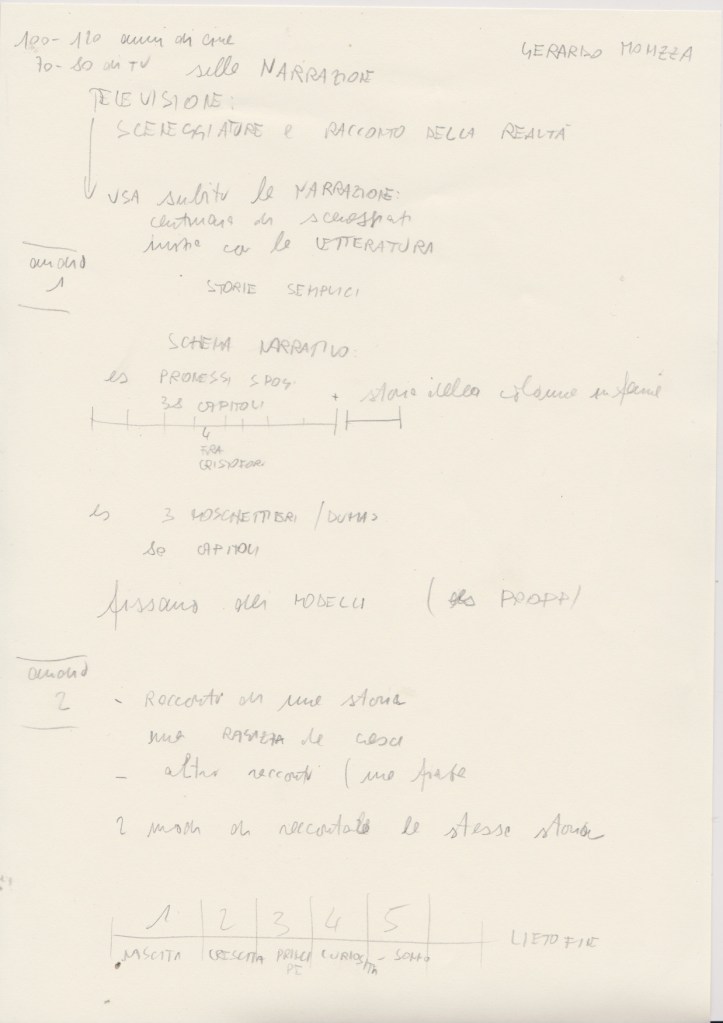 100-120 anni di cine
GERARDO
70-80 di TV sulla NARRAZIONE
TELEVISIONE:
SCENEGGIATURE e RACCONTO DELLA REALTÀ
USA subito la NARRAZIONE:
centinaia di sceneggiati
inizia con la LETTERATURA
1
STORIE SEMPLICI
SCHEMA NARRATIVO:
es PROMESSI SPOSI
38 CAPITOLI + storia della colonna infame
4
FRA
CRISTOFORO
es 3 MOSCHETTIERI / DUMAS
CAPITOLI
fissano dei MODELLI ( PROPP/
2
- Racconto di una storia
una RAGAZZA
- altro racconto (una frase
2 modi di raccontare la stessa storia
1 2 3 4 5
LIETO FINE
NASCITA CRESCITA PRINCI CURIOSITA - SONNO
PE